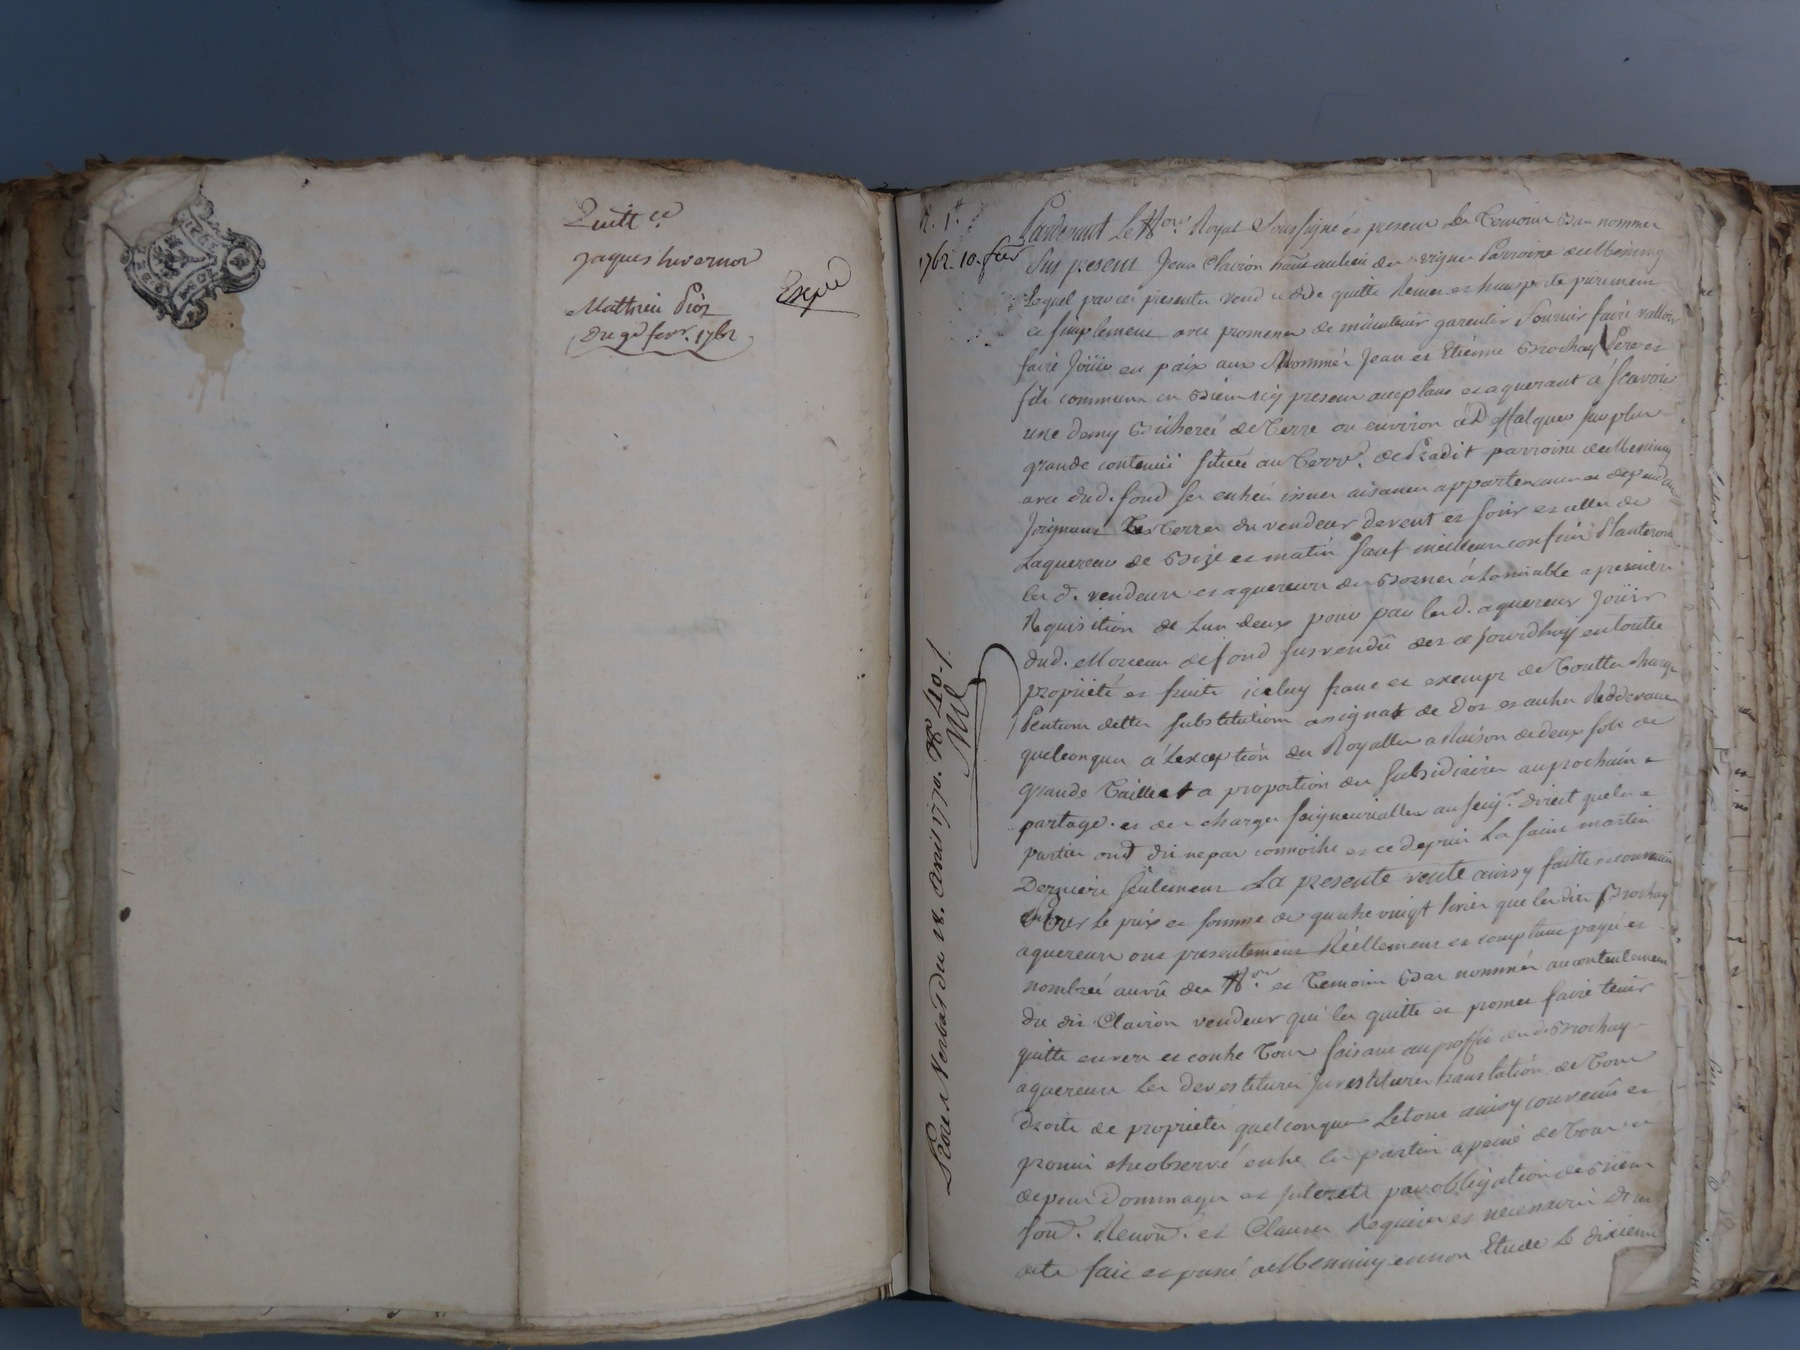 Quitt.ce
jaques hivernor
Mathieu
Du 9e fevr. 1762
Expié
N. 1er
1762. 10. fevr
Pardevant Le No.re Royal Soussigné es presence des Temoins Bas nommés
fut present Jean Clavion hant au lieu des vignes Parroisse de Messimy
Lequel par ces presentes vend cedde quitte Remet et transporte purement
et simplement avec promesse de maintenir garentir fournir faire valloir
faire Joüir en paix aux Nommés Jean et Etienne Brochay Pere et
fils communs en Biens icy presens aceptans et aquerant a scavoir
une demy Bicherée de Terre ou environ à d'une plus
grande contenüe située au Terr.e de parroisse de Messimy
avec dud. fond ses entrées issues aisances appartenances et dependances
Joignant Les Terres du vendeur de vent et soir et celles de
Laquereur de Bize et matin sauf meilleurs confins
les d. vendeurs et aquereurs de Borner à Lamiable a premiere
Requisition de Lun deux pour par les d. aquereurs Joüir
dud. Morceau de fond sus vendû des ce Jourdhuy en toutte
proprieté et fruits iceluy franc et exempt de Touttes charges
Pentions dettes substitutions assignat de Dot et autres Redevances
quelconques à Lexception des Royalles a Raison de deux sols de
grande Taille et a proportion des subsidiaires au prochain
partage. et des charges seigneurialles au seig.r direct que les
parties ont dit ne pas connoitre et ce depuis La saint martin
Derniere seulement La presente vente ainsy faitte et convenüe
entres Le prix et somme de quatre vingt livres que les dits Brochay
aquereurs ont presentement Réellement et comptant payée et
nombrée au vû des No.re et Temoins Bas nommés au contentement
du dit Clavion vendeur qui les quitte et promet faire tenir
quitte envers et contre Tous faisant au proffit desd. Brochay
aquereurs Les devestitures Jnvestitures translation de Tous
droits de proprietés quelconques Le tout ainsy convenû et
promis etre observé entre les parties a peine de Tous
depens Dommages et Jnterets par obligation de Biens
soum. Renon. et Clauses Requises et necessaires Dont
acte fait et passé a Messimy en mon Etude Le dixieme
1770